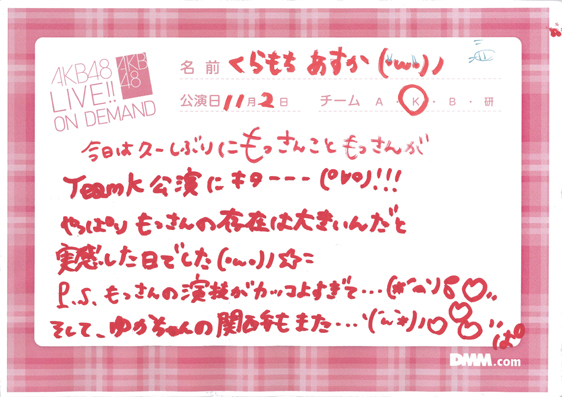 AKB48
LIVE!!
ON DEMAND
AKB
48
名前 くらもち あすか (・ω・)ノ
公演日 11月2日 チーム A・K・B・研
今日は久ーしぶりにもっさんこともっさんが
TeamK公演にキターーー(°∀°)!!!
やっぱりもっさんの存在は大きいんだと
実感した日でした(・ω・)ノ☆ミ
P.S. もっさんの演技がカッコよすぎて…
そして、ゆかちゃんの関西弁もまた…
DMM.com